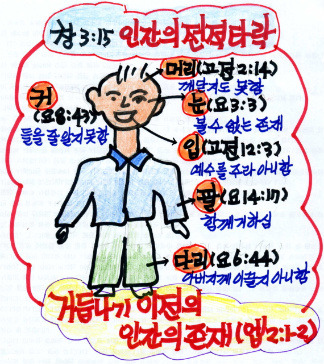 창3:15 인간의 전적타락
머리(고전2:14)
깨닫지도 못함
눈(요3:3)
볼수 없는 존재
귀
(요8:43)
들을 줄 알지 못함
입(고전12:3)
예수를 주라 아니함
팔(요14:17)
함께 거하심
다리(요6:44)
아버지께 이끌지 아니함
거듭나기 이전의
인간의 존재(엡2:1-2)